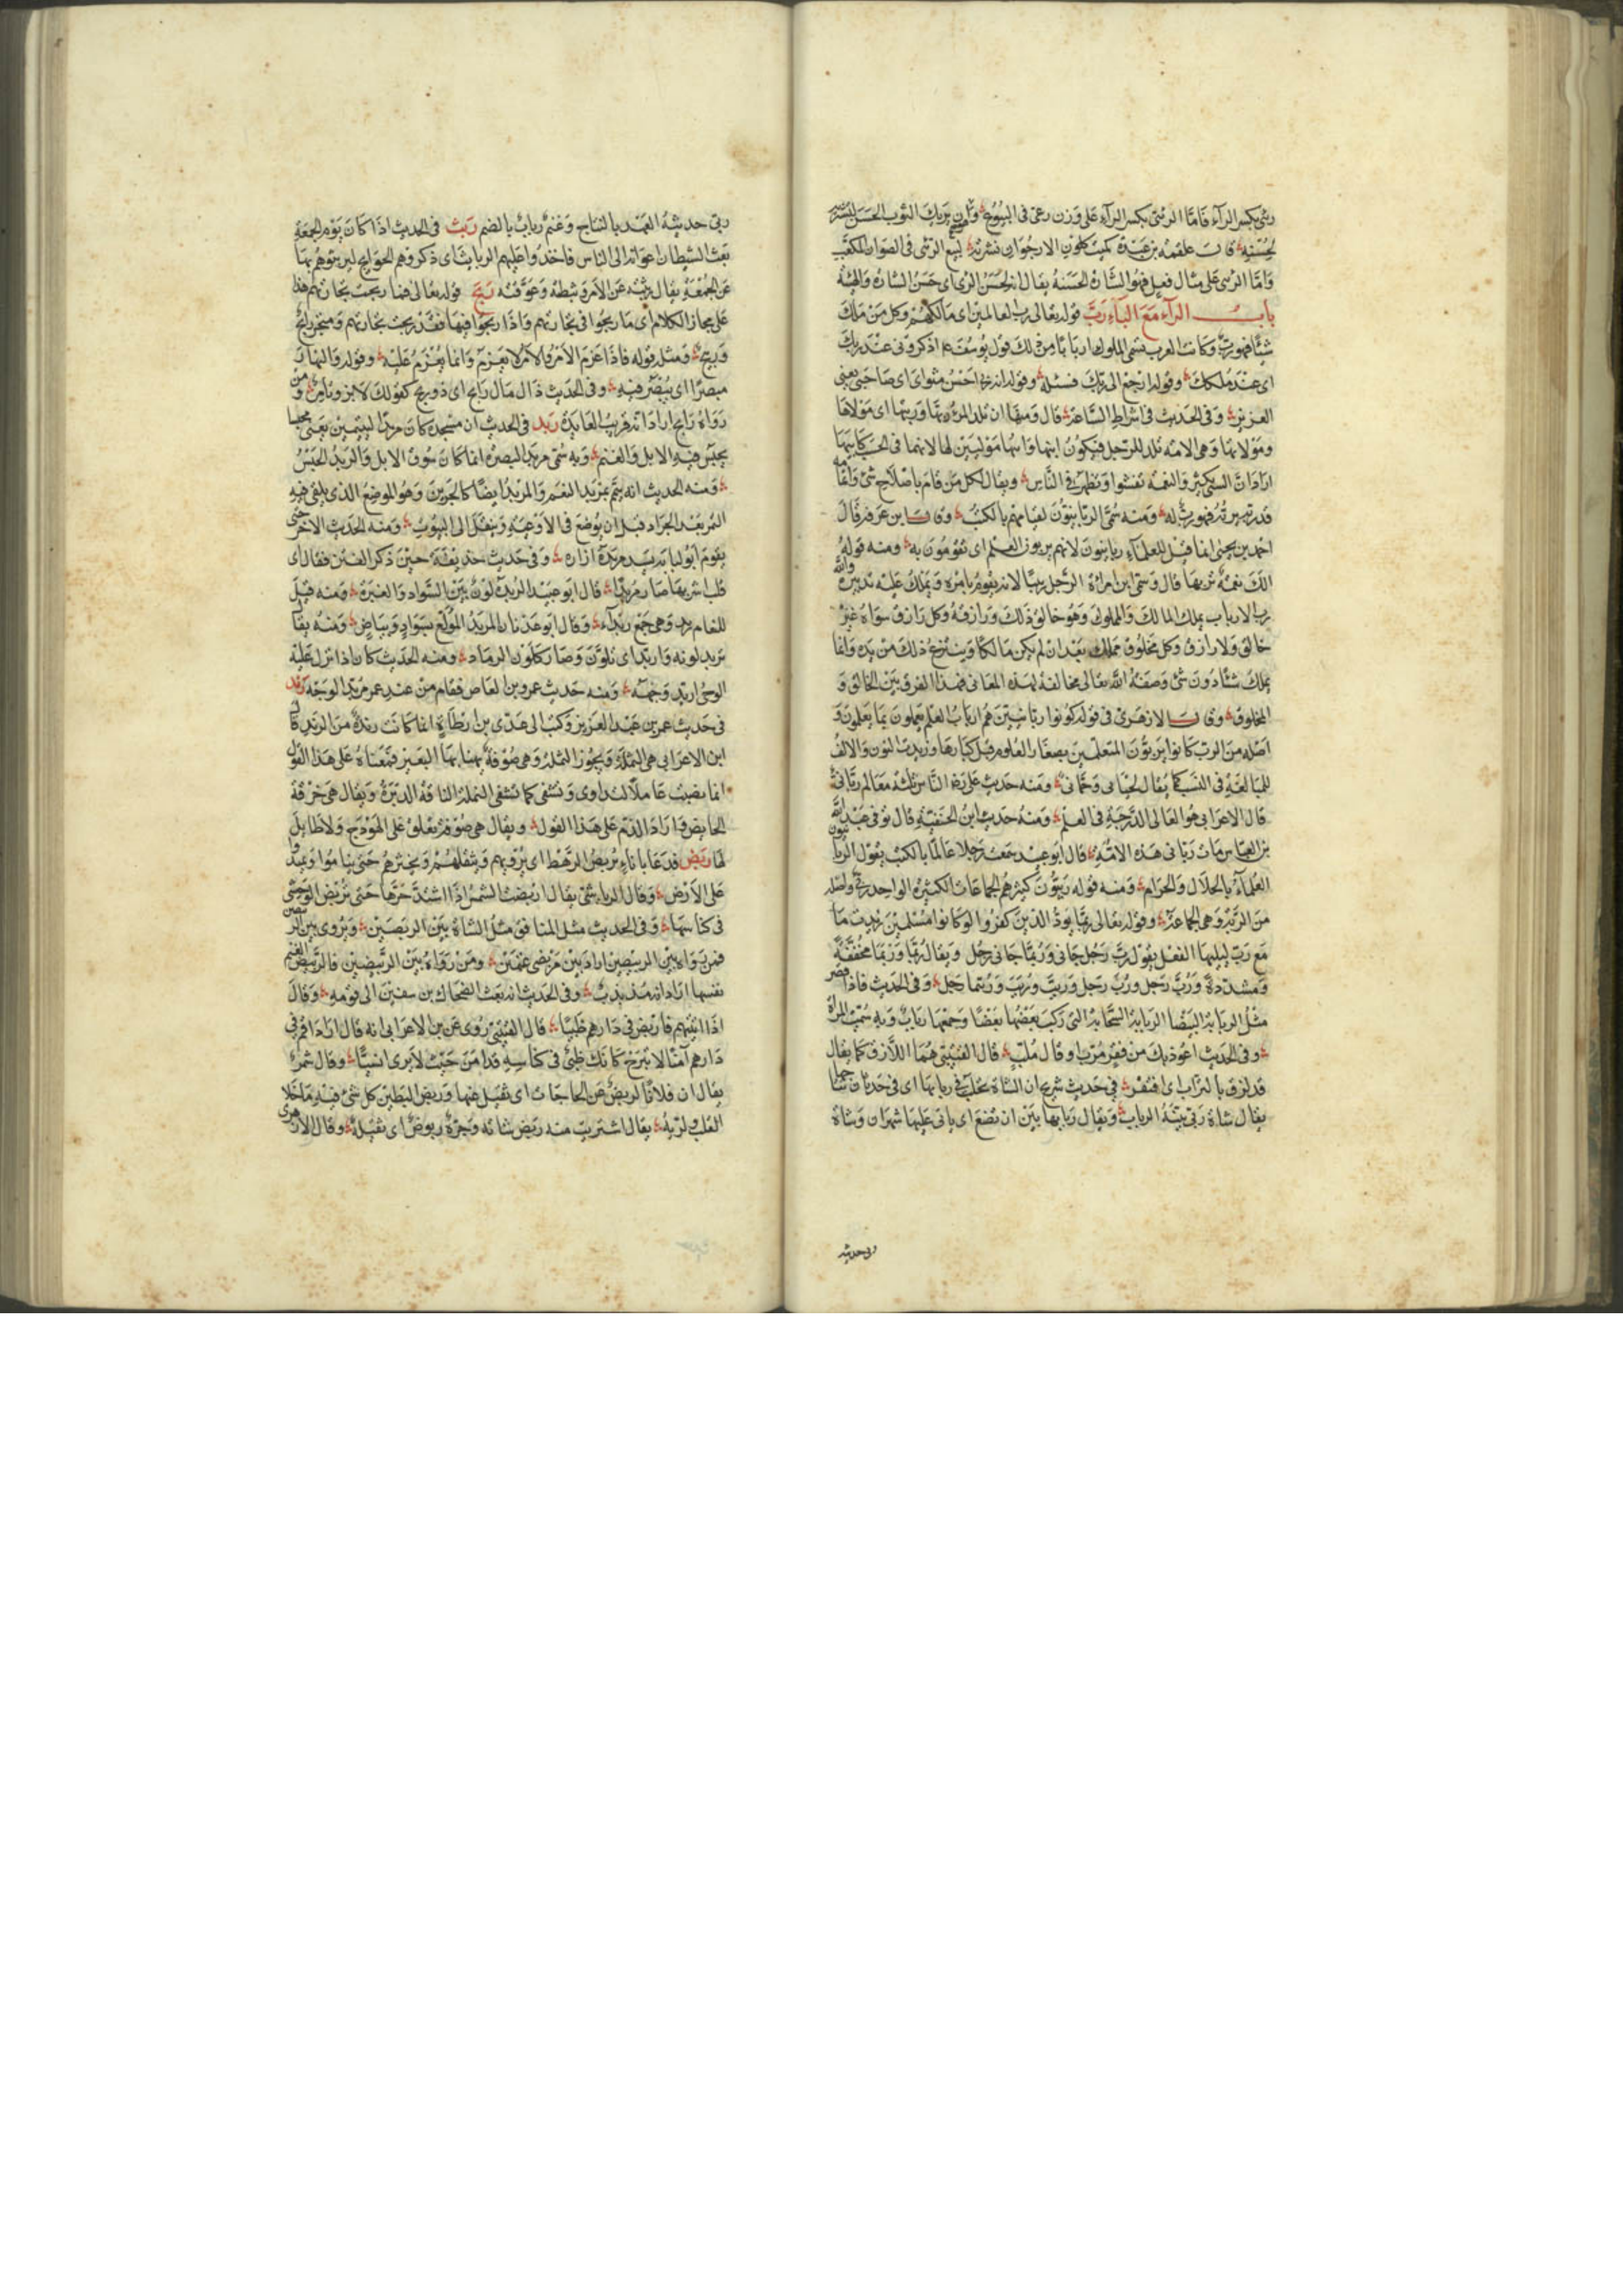 رئى بكسر الراء فاما الرئى بكسر الراء على وزن رعى فى البيوع وان يريك الثوب الحسن ليشترى
لحسنه قال علقمة بن عبدة كميت كلون الارجوان نشرته لبيع الرئى فى الصوان المكعب
واما الرئى على مثال فعيل فهو الشارة الحسنة يقال انه لحسن الرئى اى حسن الشارة والهيئة
باب الراء مع الباء رب قوله تعالى رب العالمين اى مالكهم وكل من ملك
شيئا فهو ربه وكانت العرب تسمى الملوك اربابا من ذلك قول يوسف عم اذكرنى عند ربك
اى عند ملكك وقوله ارجع الى ربك فسئله وقوله انه ربى احسن مثواى اى صاحبى يعنى
العزيز وفى الحديث فى اشراط الساعة قال ومنها ان تلد المرءة ربها وربتها اى مولاها
ومولاتها وهى الامة تلد للرجل فيكون ابنها وابنتها موليين لها لانهما فى الحسب كابيهما
اراد ان السبى يكثر والنعمة تفشوا وتظهر فى الناس ويقال لكل من قام باصلاح شئ واتمامه
قد ربه يربه فهو رب له ومنه سمى الربانيون لقيامهم بالكتب وقال ابن عرفة قال
احمد بن يحيى انما قيل للعلماء ربانيون لانهم يربون العلم اى يقومون به ومنه قوله
الك نعمة تربها قال وسمى ابن امراة الرجل ربيبا لانه يقوم بامره ويملك عليه تدبيره والله
رب الارباب يملك المالك والمملوك وهو خالق ذلك ورازقه وكل رازق سواه غير
خالق ولا رازق وكل مخلوق مملك بعد ان لم يكن مالكا وينتزع ذلك من يده وانما
يملك شيئا دون شئ وصفة الله تعالى مخالفة لهذه المعانى فهذا الفرق بين الخالق و
المخلوق وقال الازهرى فى قوله كونوا ربانيين هم ارباب العلم يعملون بما يعلمون و
اصله من الرب كانوا يربون المتعلمين بصغار العلوم قبل كبارها وزيدت النون والالف
للمبالغة فى النسب كما يقال لحيانى وجمانى ومنه حديث على رضه الناس ثلثة فعالم ربانى
قال الاعرابى هو العالى الدرجة فى العلم ومنه حديث ابن الحنفية قال توفى عبد الله
بن العباس مات ربانى هذه الامة قال ابو عبيد سمعت رجلا عالما بالكتب يقول الربانيون
العلماء بالحلال والحرام ومنه قوله ربيون كثير هم الجماعات الكثيرة الواحد ربى واصله
من الربة وهى الجماعة وقوله تعالى ربما يود الذين كفروا لو كانوا مسلمين زيدت ما
مع رب ليليها الفعل يقول رب رجل جانى وربما جانى رجل ويقال ربما وربما مخففة
ومشددة ورب رجل ورب رجل وربت وربت وربتما رجل وفى الحديث فاذا قصر
مثل الربابة البيضا الربابة السحابة التى ركب بعضها بعضا وجمعها رباب وبه سميت المرأة
وفى الحديث اعوذ بك من فقر مرب او قال ملب قال القتيبى هما اللازق كما يقال
قد لزق بالتراب اى افتقر فى حديث شريح ان الشاة تحلب فى ربابها اى فى حدثان نتاجها
يقال شاة ربى بينة الرباب ويقال ربابها بين ان تضع اى ياتى عليها شهران وشاة
ربى حديثة
ربى حديثة العهد بالنتاج وغنم رباب بالضم ربث فى الحديث اذا كان يوم الجمعة
بعث الشيطان اعوانه الى الناس فاخذوا عليهم الربائث اى ذكروهم الحوايج ليربثوهم بها
عن الجمعة يقال ربثه عن الامر وثبطه وعوقته ربح قوله تعالى فما ربحت تجارتهم هذا
على مجاز الكلام اى ما ربحوا فى تجارتهم واذا ربحوا فيها فقد ربحت تجارتهم ومتجر رابح
وربيح ومثله قوله فاذا عزم الامر والامر لا يعزم وانما يعزم عليه وقوله والنهار
مبصرا اى يبصر فيه وفى الحديث ذاك مال رابح اى ذو ربح كقولك لابن وتامر ومن
رواه رايح اراد انه قريب العايدة ربد فى الحديث ان مسجده كان مربدا ليتيمين يعنى محبسا
يحبس فيه الابل والغنم وبه سمى مربد البصرة انما كان سوق الابل والربد الحبس
ومنه الحديث انه تيمم بمربد النعم والمربد ايضا كالجرين وهو الموضع الذى يلقى فيه
التمر بعد الجداد قبل ان يوضع فى الاوعية وينقل الى البيوت ومنه الحديث الاخر حتى
يقوم ابو لبابة يسد مربده ازاره وفى حديث حذيفة حين ذكر الفتن فقال اى
قلب اشربها صار مربدا قال ابو عبيد الربدة لون بين السواد والغبرة ومنه قيل
للنعام ربد وهى جمع ربداء وقال ابو عدنان المربد المولع بسواد وبياض ومنه يقال
تربد لونه واربد اى تلون وصار كلون الرماد ومنه الحديث كان اذا نزل عليه
الوحى اربد وجهه ومنه حديث عمرو بن العاص فقام من عند عمر مربد الوجه ربذ
فى حديث عمر بن عبد العزيز وكتب الى عدى بن ارطاة انما كانت ربذة من الربذ قال
ابن الاعرابى هى الثملة ويجوز الثملة وهى صوفة يهنا بها البعير فمعناه على هذا القول
انما نصبت عاملا لتداوى وتشفى كما تشفى الثملة الناقة الدبرة ويقال هى خرقة
الحايض واراد الذم على هذا القول ويقال هى صوفة تعلق على الهودج ولا طايل
لها ربض فدعا باناء يربض الرهط اى يرويهم ويثقلهم ويخثرهم حتى يناموا ويمتدوا
على الارض وقال الرياشى يقال اربضت الشمس اذا اشتد حرها حتى تربض الوحشى
فى كناسها وفى الحديث مثل المنافق مثل الشاة بين الربضين ويروى بين الربيضين
فمن رواه بين الربضين اراد بين مربضى غنمين ومن رواه بين الربيضين فالربيض الغنم
نفسها اراد انه مذبذب وفى الحديث انه بعث الضحاك بن سفين الى قومه وقال
اذا اتيتهم فاربض فى دارهم ظبيا قال القتيبى روى عن بن الاعرابى انه قال اراد اقم فى
دارهم آمنا لا تبرح كانك ظبى فى كناسه قد امن حيث لا يرى انسيا وقال شمر
يقال ان فلانا لربض عن الحاجات اى ثقيل عنها وربض البطن كل شئ فيه ما خلا
القلب والرية يقال اشتريت منه ربض شاته وشجرة ربوض اى ثقيلة وقال الازهرى